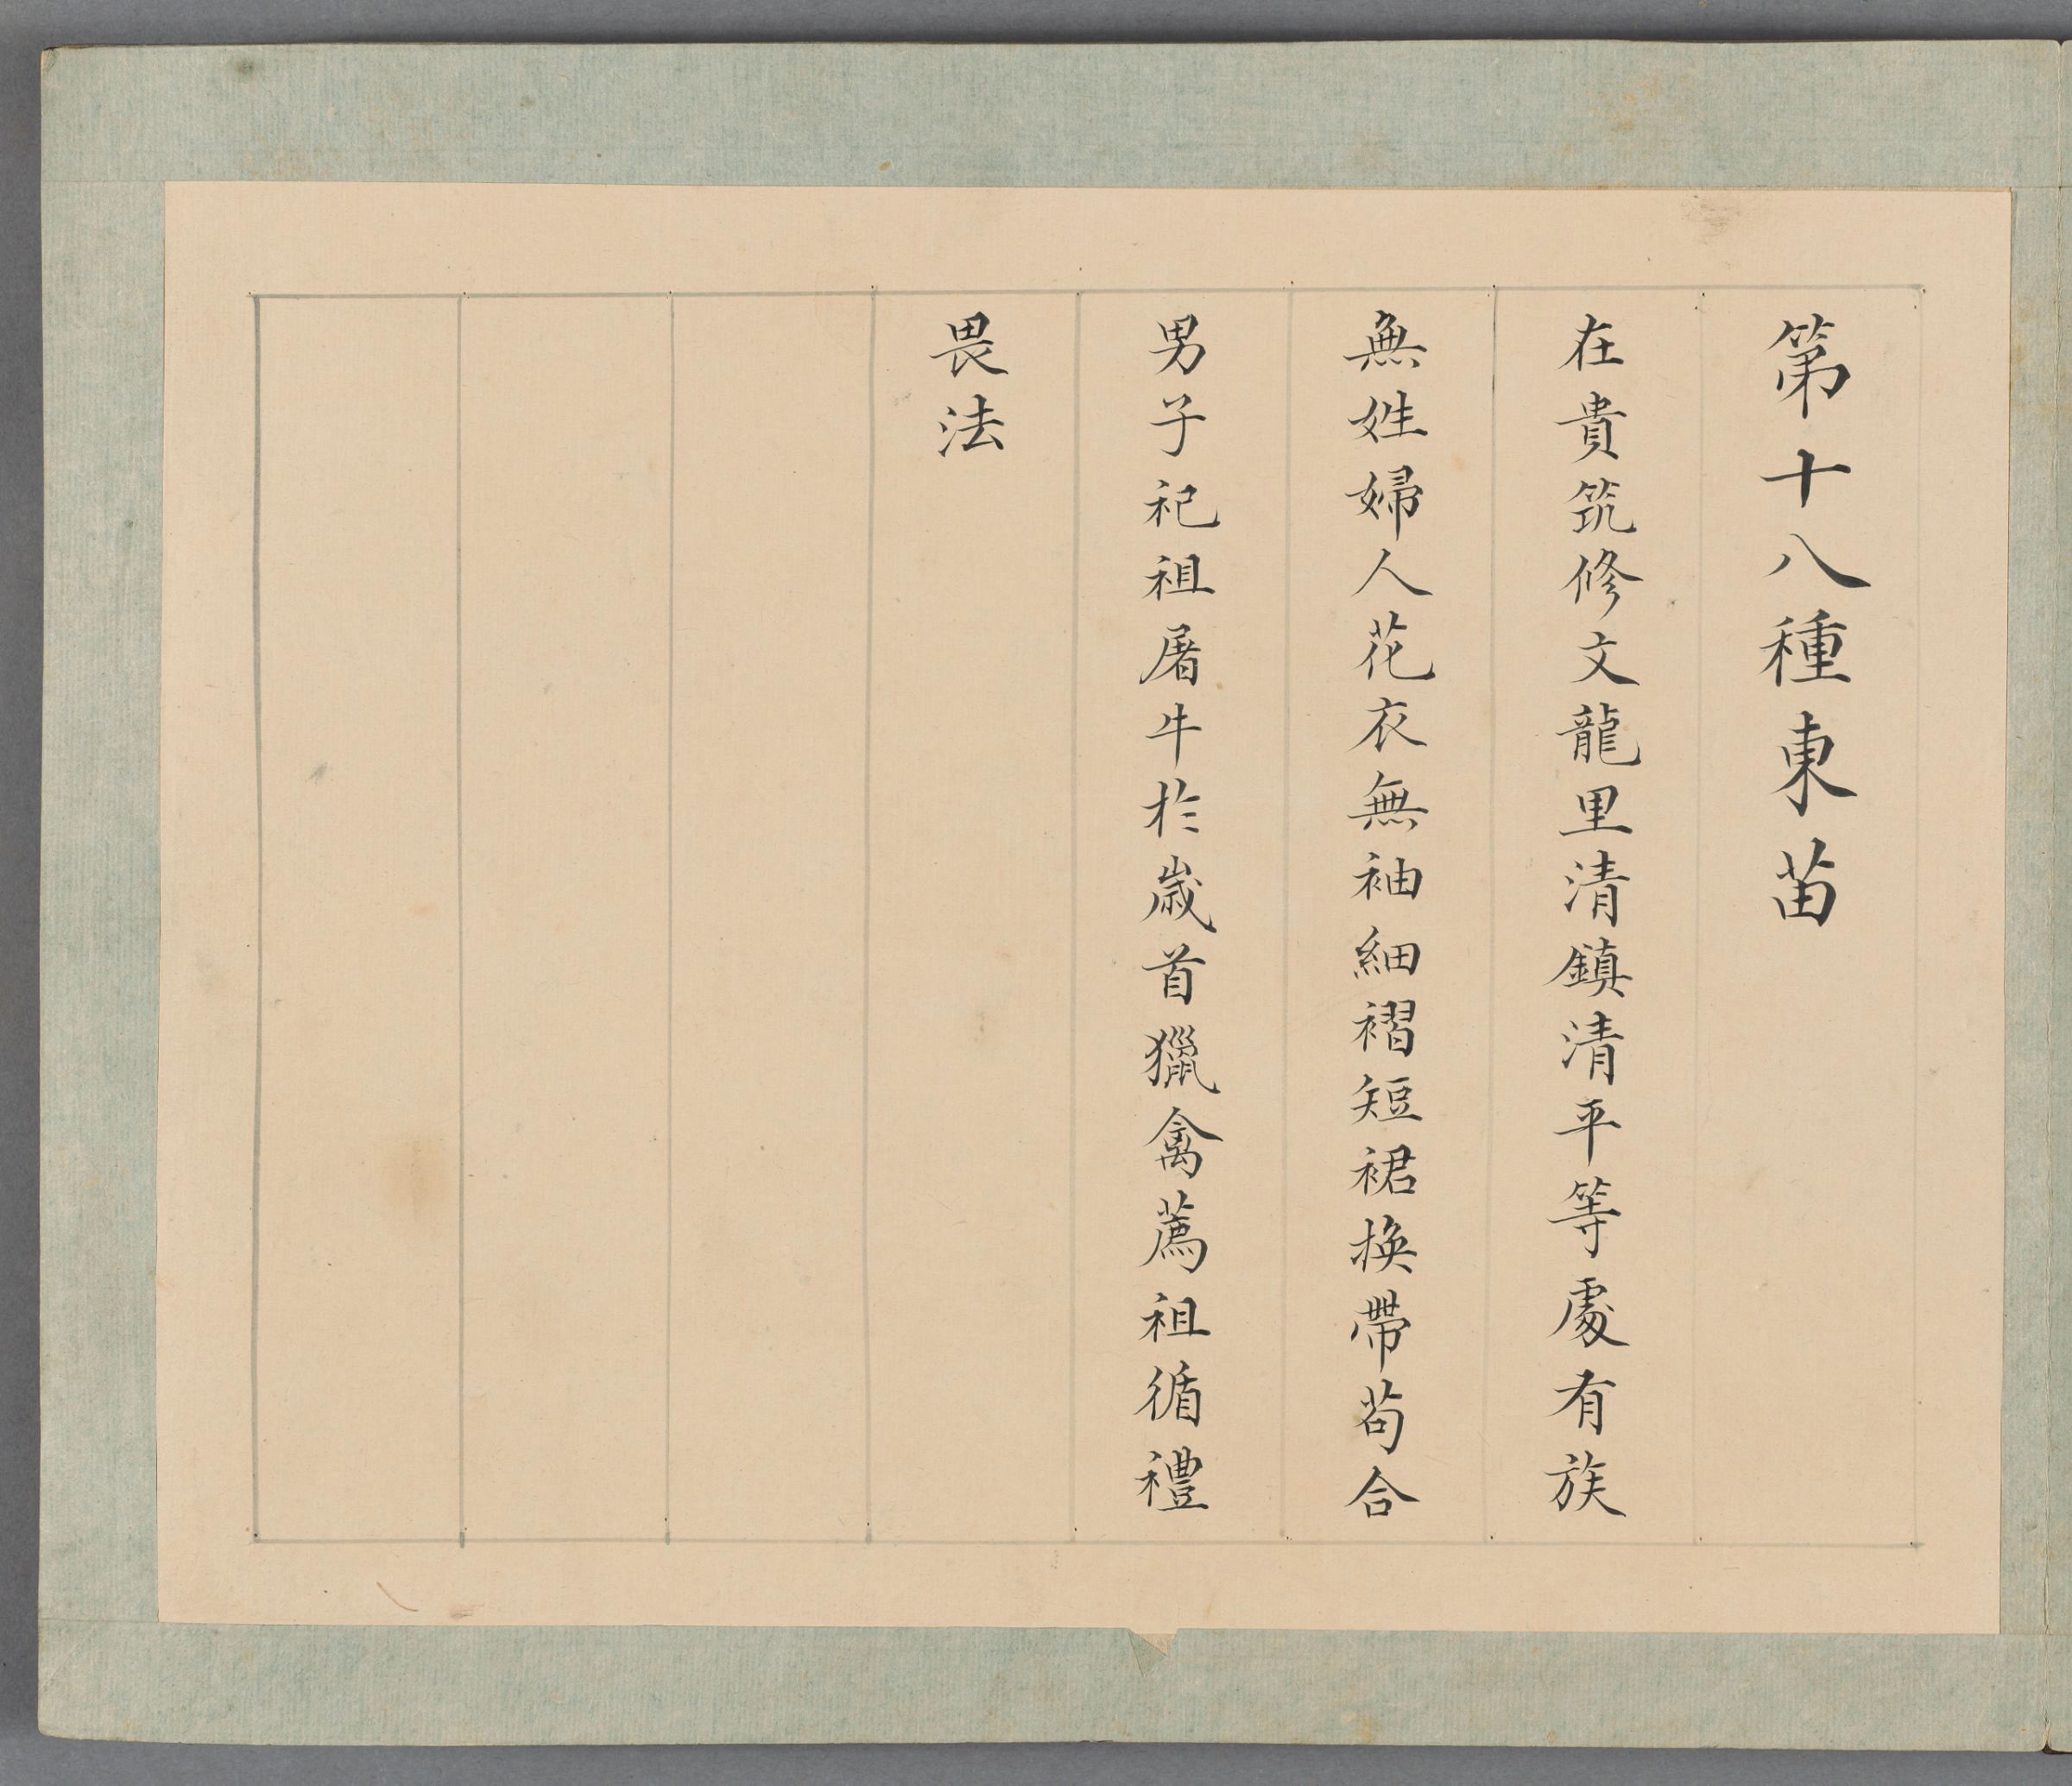 第十八種東苗
在貴筑修文龍里清鎮清平等處有族
無姓婦人花衣無袖細褶短裙換帶苟合
男子祀祖屠牛於歲首獵禽薦祖循禮
畏法